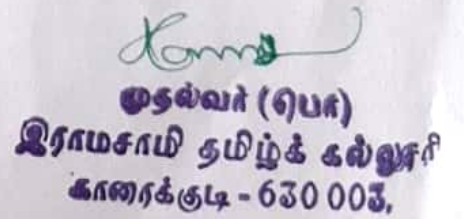 முதல்வர் (பொ)
இராமசாமி தமிழ்க் கல்லூரி
காரைக்குடி - 630 003.